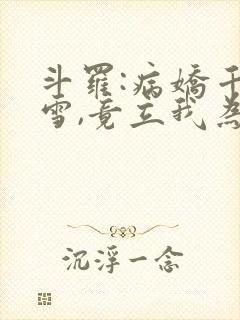 斗羅:病嬌千
雪,竟立我為
沉浮一念